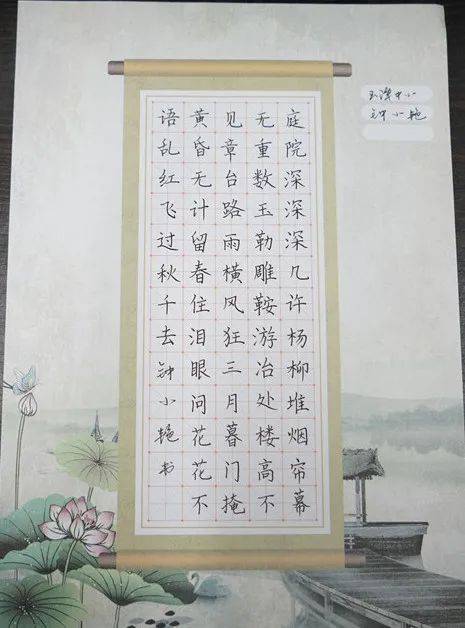 庭院深深深几许杨柳堆烟帘幕
无重数玉勒雕鞍游冶处楼高不
见章台路雨横风狂三月暮门掩
黄昏无计留春住泪眼问花花不
语乱红飞过秋千去钟小艳书
钟小艳